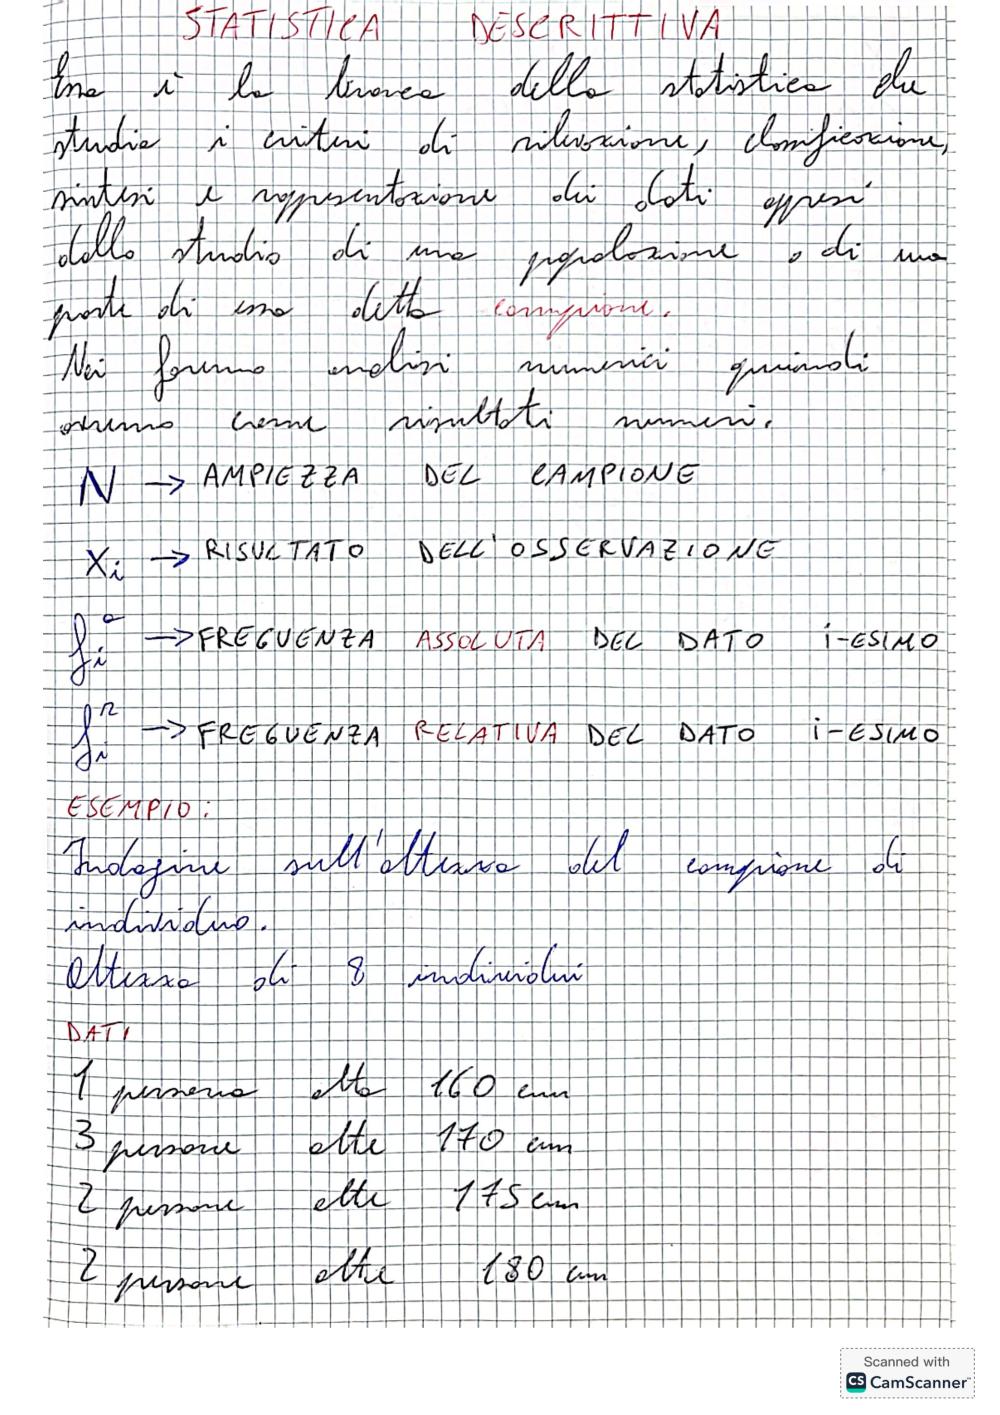 STATISTICA DESCRITTIVA
Essa è la branca della statistica che
studia i criteri di rilevazione, classificazione,
sintesi e rappresentazione dei dati appresi
dallo studio di una popolazione o di una
parte di essa detta campione.
Noi faremo analisi numerici quindi
avremo come risultati numeri.
N → AMPIEZZA DEL CAMPIONE
Xi → RISULTATO DELL'OSSERVAZIONE
fi^a → FREGUENZA ASSOLUTA DEL DATO i-ESIMO
fi^r → FREGUENZA RELATIVA DEL DATO i-ESIMO
ESEMPIO:
Indagine sull'altezza del campione di
individuo.
Altezza di 8 individui
DATI
1 persona alta 160 cm
3 persone alte 170 cm
2 persone alte 175 cm
2 persone alte 180 cm
Scanned with
CS CamScanner